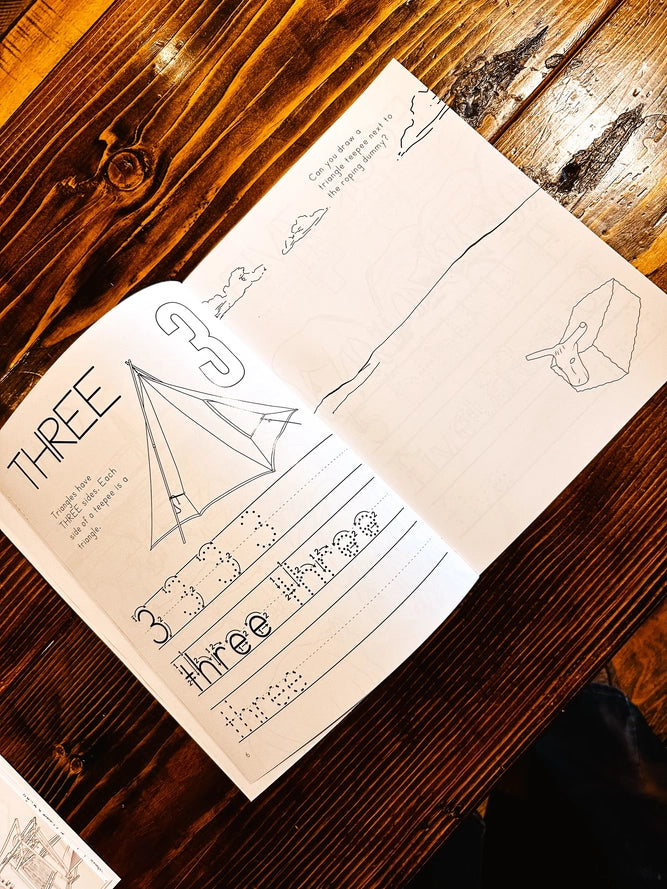 THREE
3
Triangles have
THREE sides. Each
side of a teepee is a
triangle.
3 3 3 3
three three
three
6
Can you draw a
triangle teepee next to
the roping dummy?